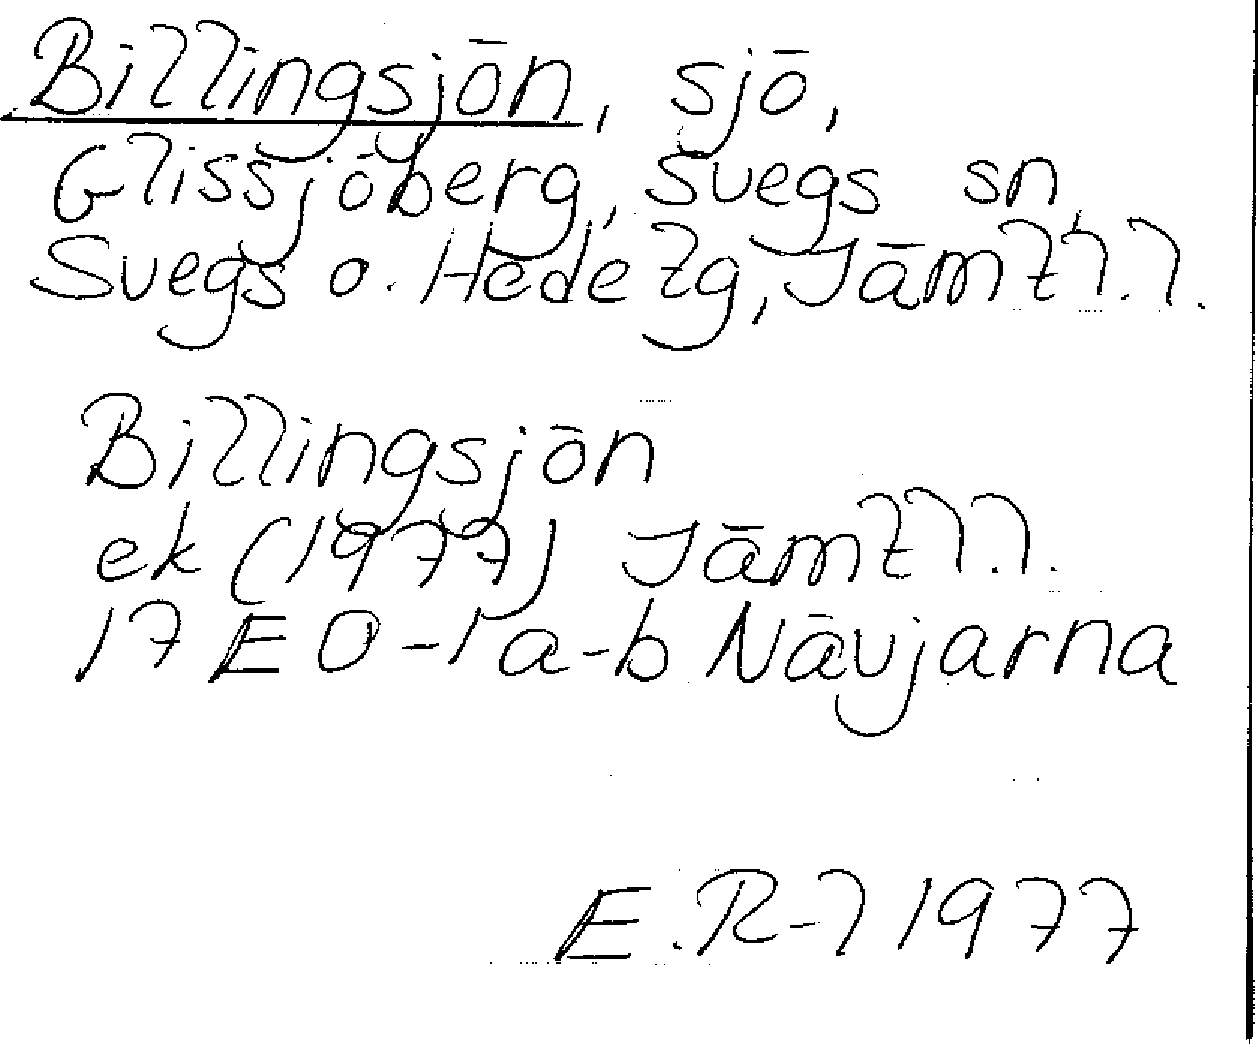 Billingsjön, sjö,
Glissjöberg, Svegs sn,
Svegs o. Hede tg, Jämtl. l.
Billingsjön
ek (1977) Jämtl. l.
17 E 0-1 a-b Nävjarna
E. R-l 1977